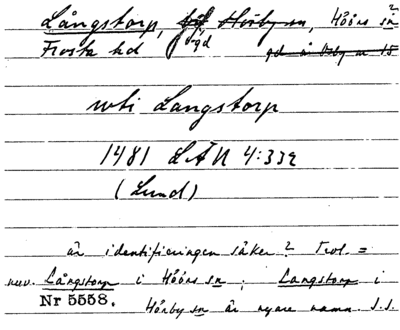 Långstorp, Hörby sn, Höörs sn?
Frosta hd gd
wti Langstorp
1481 LÄU 4:332
(Lund)
är identifieringen säker? Trol. =
nuv. Långstorp i Höörs sn; Langstorp i
Nr 5558. Hörby sn är nyare namn. S.S.